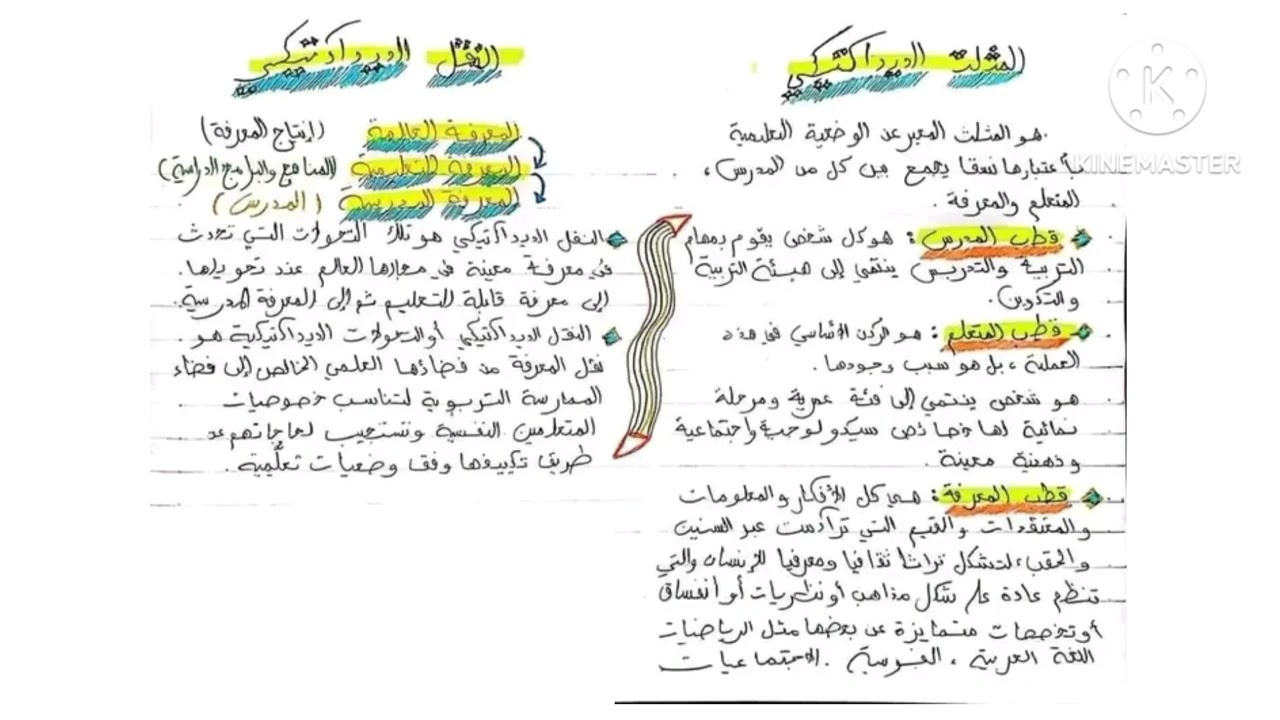 المثلث الديداكتيكي
هو المثلث المعبر عن الوضعية التعليمية
بأعتبارها نسقا يجمع بين كل من المدرس،
المتعلم والمعرفة.
قطب المدرس: هو كل شخص يقوم بمهام
التربية والتدريس ينتمي إلى هيئة التربية
والتكوين.
قطب المتعلم: هو الركن الأساسي في هذه
العملية، بل هو سبب وجودها.
هو شخص ينتمي إلى فئة عمرية ومرحلة
نمائية لها خصائص سيكولوجية واجتماعية
وذهنية معينة.
قطب المعرفة: هي كل الأفكار والمعلومات
والمعتقدات والقيم التي تراكمت عبر السنين
والحقب، لتشكل تراثا ثقافيا ومعرفيا للإنسان والتي
تنظم عادة على شكل مذاهب أو نظريات أو أنساق
أو تخصصات متمايزة عن بعضها مثل الرياضيات
اللغة العربية، الفرنسية. الاجتماعيات
النقل الديداكتيكي
المعرفة العالمة (إنتاج المعرفة)
المعرفة التعليمية (المناهج والبرامج الدراسية)
المعرفة المدرسية (المدرس)
النقل الديداكتيكي هو تلك التحولات التي تحدث
في معرفة معينة في مجارها العالم عند تحويلها.
إلى معرفة قابلة للتعليم ثم إلى المعرفة المدرسية.
النقل الديداكتيكي أو التحولات الديداكتيكية هو.
نقل المعرفة من فضاؤها العلمي الخالص إلى فضاء
الممارسة التربوية لتناسب خصوصيات
المتعلمين النفسية وتستجيب لحاجاتهم عن
طريق تكييفها وفق وضعيات تعلمية.
K
KINEMASTER